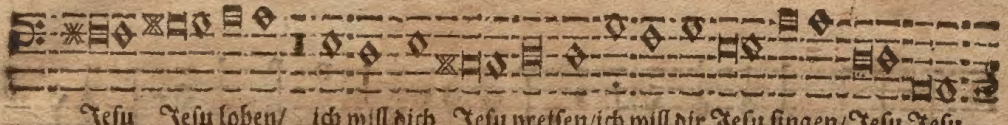 Jesu Jesu loben/ ich will dich Jesu preisen/ich will dir Jesu singen/Jesu Jesu